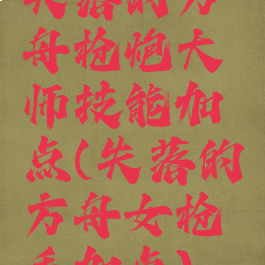 失落的方
舟枪炮大
师技能加
点(失落的
方舟女枪
手加点)